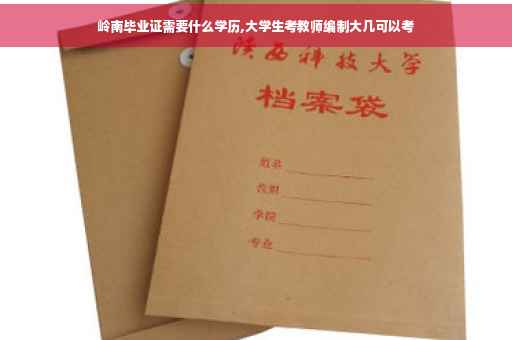 岭南毕业证需要什么学历,大学生考教师编制大几可以考
陕西科技大学
档案袋
学院
专业